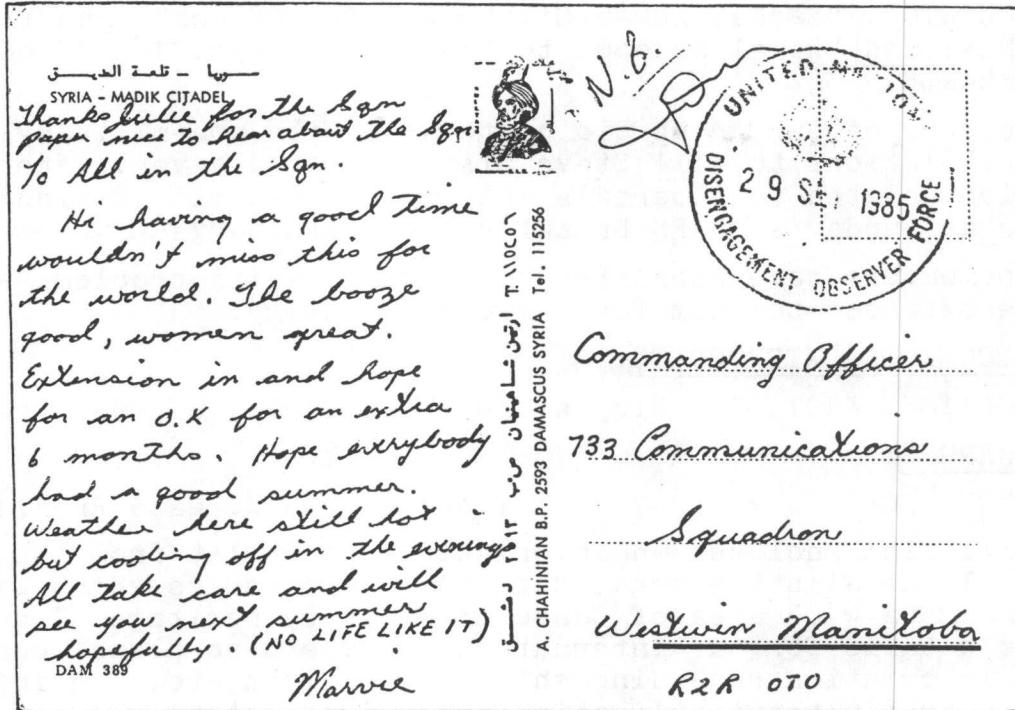 سوريا - قلعة المضيق
SYRIA - MADIK CITADEL
Thanks Julie for the Sqn
paper nice to hear about the Sqn.
To All in the Sqn.
Hi having a good time
wouldn't miss this for
the world. The booze
good, women great.
Extension in and hope
for an O.K for an extra
6 months. Hope everybody
had a good summer.
Weather here still hot
but cooling off in the evenings
All take care and will
see you next summer
hopefully. (NO LIFE LIKE IT)
Marvie
DAM 389
A CHAHINIAN B.P. 2593 DAMASCUS SYRIA Tel. 115256
ارتين شاهينيان ص.ب ٢٥٩٣ دمشق ت. ١١٥٢٥٦
N.B.
UNITED NATIONS
29 SE 1985
DISENGAGEMENT OBSERVER FORCE
Commanding Officer
733 Communications
Squadron
Westwin Manitoba
R2R 0T0